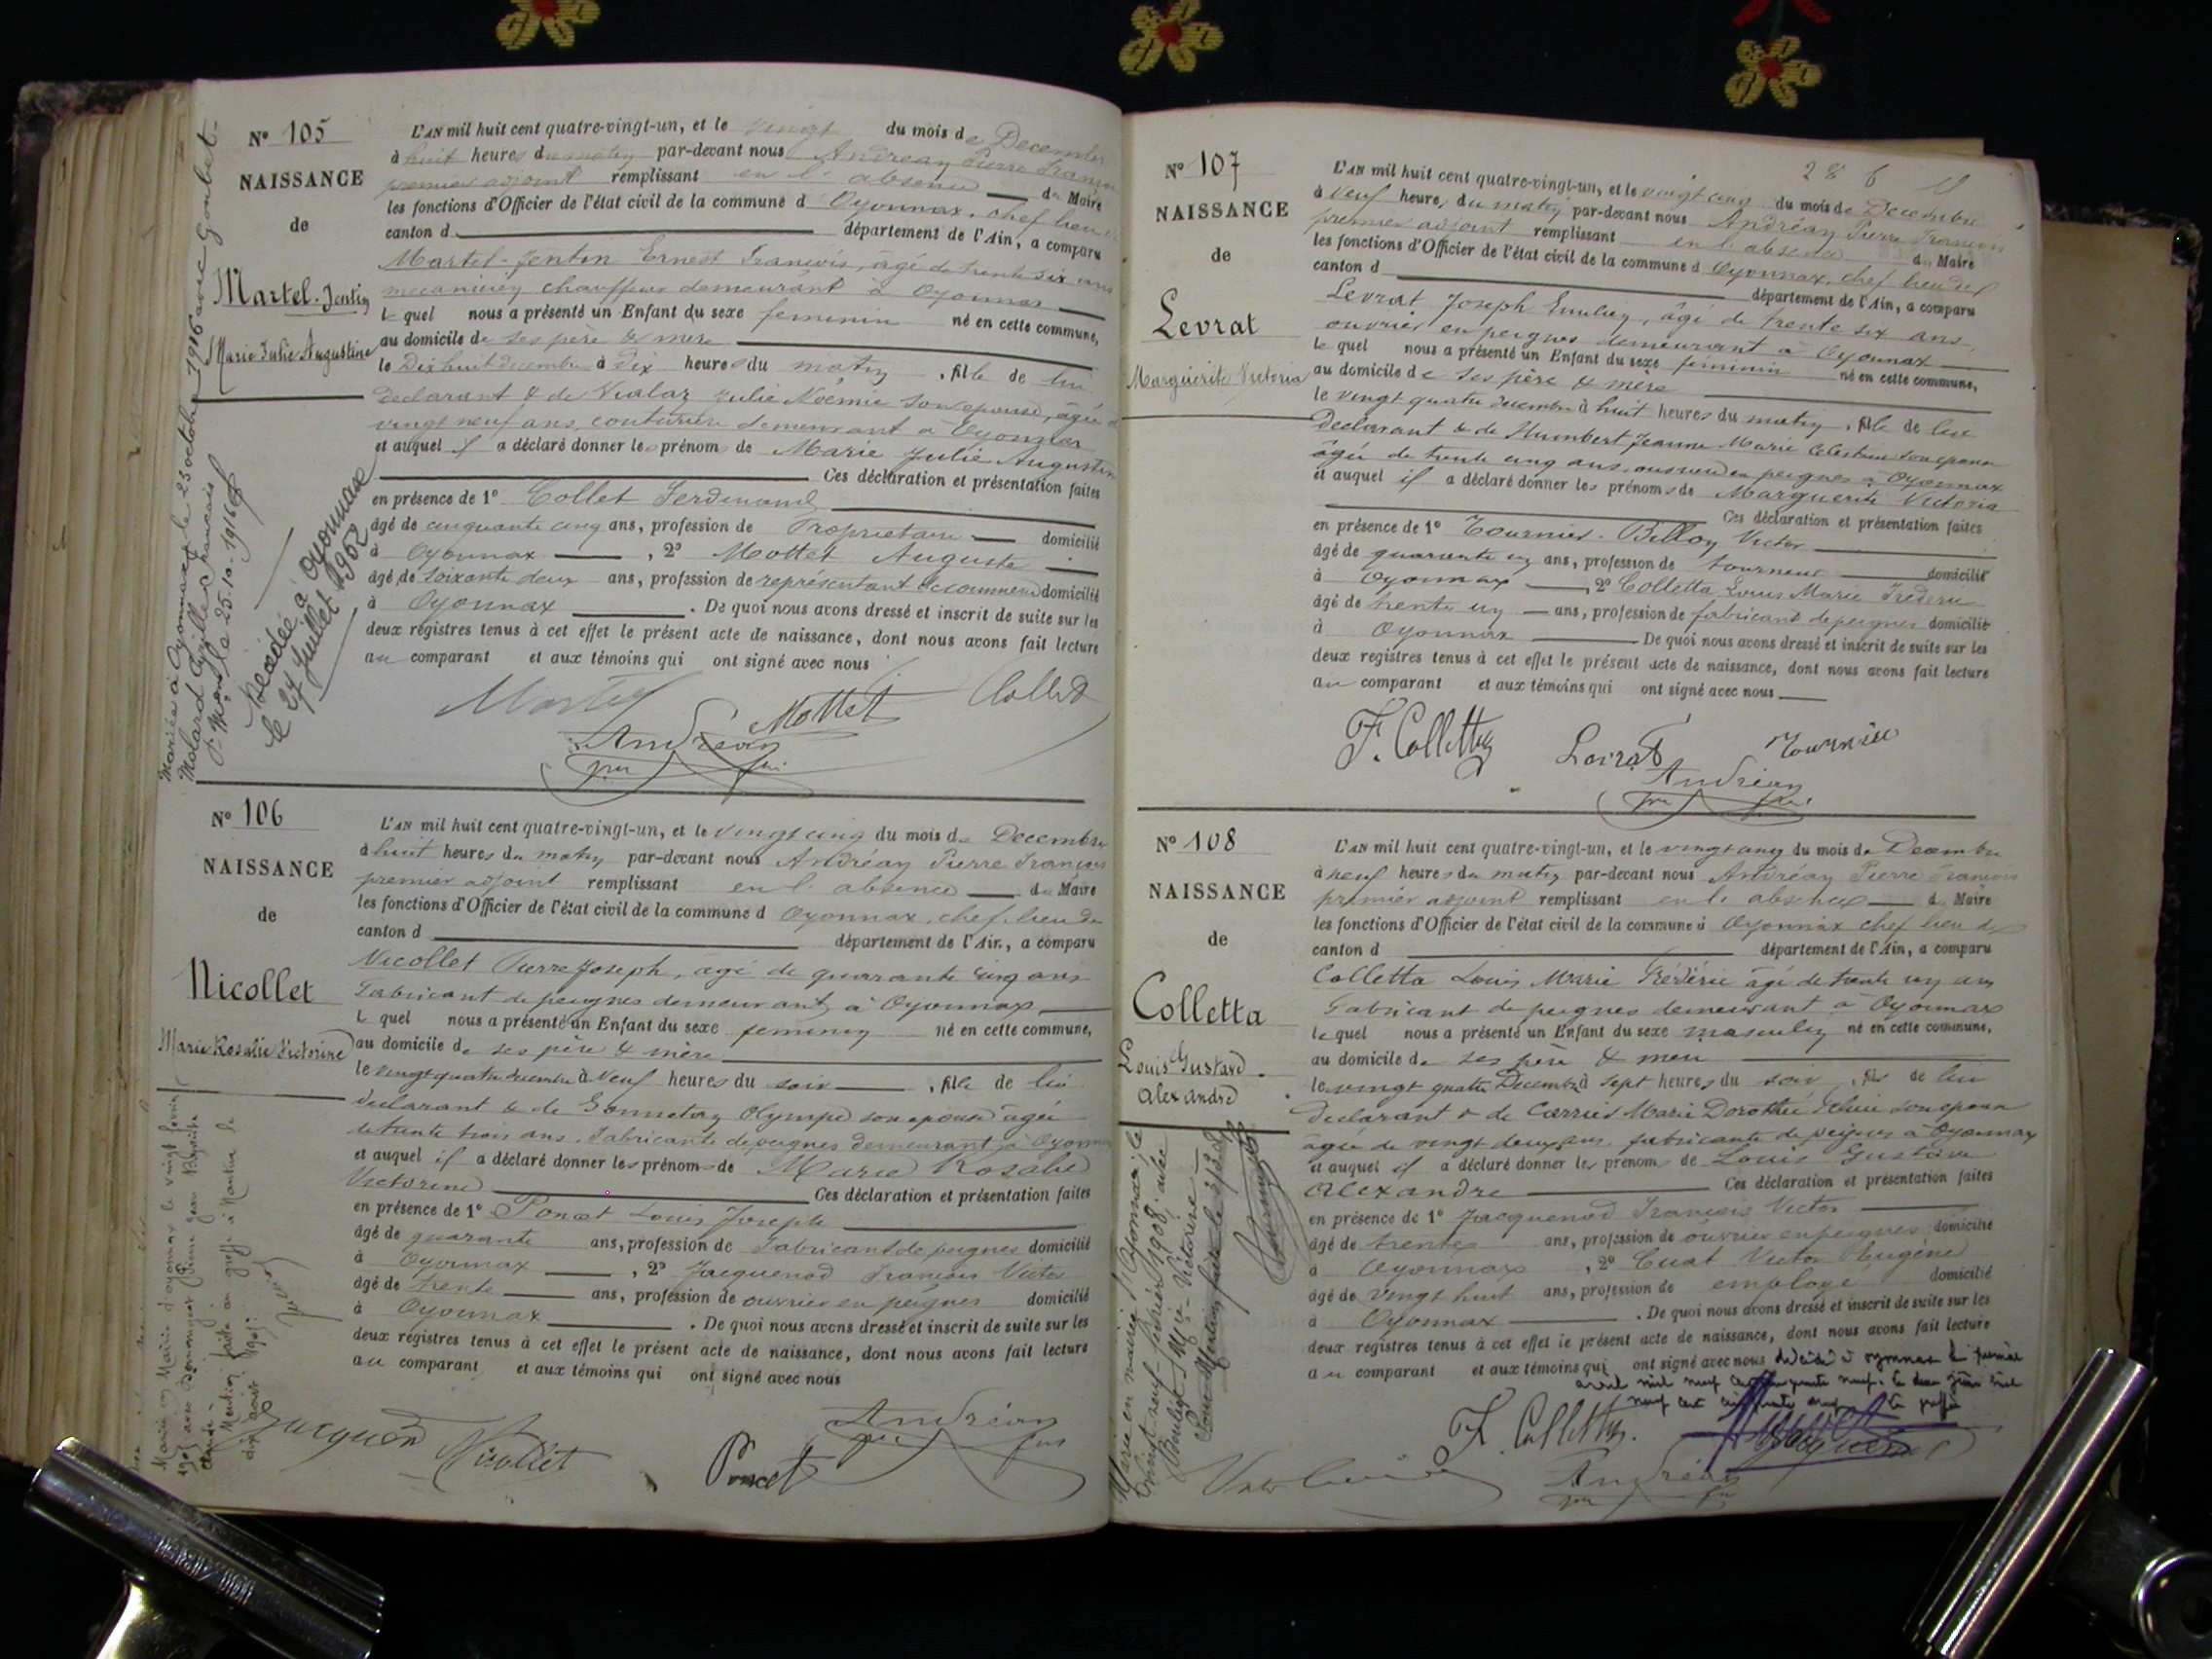 N° 105
NAISSANCE
de
Martel-Jentin
Marie Julie Augustine
L'AN mil huit cent quatre-vingt-un, et le vingt du mois de Decembre
à huit heures du matin par-devant nous Andréan Pierre François
premier adjoint remplissant en l'absence du Maire
les fonctions d'Officier de l'état civil de la commune d Oyonnax, chef lieu de
canton d département de l'Ain, a comparu
Martel-Jentin Ernest François, âgé de trente six ans
mecanicien chauffeur demeurant à Oyonnax
le quel nous a présenté un Enfant du sexe feminin né en cette commune,
au domicile de ses père & mère
le Dix huit decembre à dix heures du matin, fille de lui
Declarant & de Vialaz Julie Noémie son epouse, âgée de
vingt neuf ans, couturière demeurant à Oyonnax
et auquel il a déclaré donner les prénoms de Marie Julie Augustine
Ces déclaration et présentation faites
en présence de 1° Collet Ferdinand
âgé de cinquante cinq ans, profession de Proprietaire domicilié
à Oyonnax, 2° Mottet Auguste
âgé de soixante deux ans, profession de représentant de commerce domicilié
à Oyonnax. De quoi nous avons dressé et inscrit de suite sur les
deux registres tenus à cet effet le présent acte de naissance, dont nous avons fait lecture
au comparant et aux témoins qui ont signé avec nous
Martel Mottet Collet
Andréan
Mariée à Oyonnax le 25 octobre 1916 avec Goubet
Décédée à Oyonnax
le 27 Juillet 1952
N° 106
NAISSANCE
de
Nicollet
Marie Rosalie Victorine
L'AN mil huit cent quatre-vingt-un, et le vingt cinq du mois de Decembre
à huit heures du matin par-devant nous Andréan Pierre François
premier adjoint remplissant en l'absence du Maire
les fonctions d'Officier de l'état civil de la commune d Oyonnax, chef lieu de
canton d département de l'Ain, a comparu
Nicollet Pierre Joseph, âgé de quarante cinq ans
Fabricant de peignes demeurant à Oyonnax
le quel nous a présenté un Enfant du sexe feminin né en cette commune,
au domicile de ses père & mère
le vingt quatre decembre à neuf heures du soir, fille de lui
declarant & de Olympe son epouse âgée
de trente trois ans, Fabricante de peignes demeurant à Oyonnax
et auquel il a déclaré donner les prénoms de Marie Rosalie
Victorine Ces déclaration et présentation faites
en présence de 1° Poncet Louis Joseph
âgé de quarante ans, profession de Fabricant de peignes domicilié
à Oyonnax, 2° Jacquenod François Victor
âgé de trente ans, profession de ouvrier en peignes domicilié
à Oyonnax. De quoi nous avons dressé et inscrit de suite sur les
deux registres tenus à cet effet le présent acte de naissance, dont nous avons fait lecture
au comparant et aux témoins qui ont signé avec nous
Nicollet Poncet Andréan
286
N° 107
NAISSANCE
de
Levrat
Marguerite Victoria
L'AN mil huit cent quatre-vingt-un, et le vingt cinq du mois de Decembre
à neuf heures du matin par-devant nous Andréan Pierre François
premier adjoint remplissant en l'absence du Maire
les fonctions d'Officier de l'état civil de la commune d Oyonnax, chef lieu de
canton d département de l'Ain, a comparu
Levrat Joseph, âgé de trente six ans,
ouvrier en peignes demeurant à Oyonnax
le quel nous a présenté un Enfant du sexe feminin né en cette commune,
au domicile de ses père & mère
le vingt quatre decembre à huit heures du matin, fille de lui
Declarant & de Humbert Jeanne Marie Celestine son epouse
âgée de trente cinq ans, ouvrière en peignes à Oyonnax
et auquel il a déclaré donner les prénoms de Marguerite Victoria
Ces déclaration et présentation faites
en présence de 1° Tournier-Billon Victor
âgé de quarante un ans, profession de tourneur domicilié
à Oyonnax, 2° Colletta Louis Marie Frédéric
âgé de trente un ans, profession de fabricant de peignes domicilié
à Oyonnax De quoi nous avons dressé et inscrit de suite sur les
deux registres tenus à cet effet le présent acte de naissance, dont nous avons fait lecture
au comparant et aux témoins qui ont signé avec nous
F. Colletta Levrat Tournier
Andréan
N° 108
NAISSANCE
de
Colletta
Louis Gustave
Alexandre
L'AN mil huit cent quatre-vingt-un, et le vingt cinq du mois de Decembre
à neuf heures du matin par-devant nous Andréan Pierre François
premier adjoint remplissant en l'absence d Maire
les fonctions d'Officier de l'état civil de la commune d Oyonnax chef lieu de
canton d département de l'Ain, a comparu
Colletta Louis Marie Frédéric âgé de trente un ans
Fabricant de peignes demeurant à Oyonnax
le quel nous a présenté un Enfant du sexe masculin né en cette commune,
au domicile de ses père & mère
le vingt quatre Decembre à sept heures du soir, fils de lui
declarant & de Carrier Marie Dorothée son epouse
âgée de vingt deux ans, fabricante de peignes à Oyonnax
et auquel il a déclaré donner les prénoms de Louis Gustave
Alexandre Ces déclaration et présentation faites
en présence de 1° Jacquenod François Victor
âgé de trente ans, profession de ouvrier en peignes domicilié
à Oyonnax, 2° Cuat Victor Eugène
âgé de vingt huit ans, profession de employé domicilié
à Oyonnax. De quoi nous avons dressé et inscrit de suite sur les
deux registres tenus à cet effet le présent acte de naissance, dont nous avons fait lecture
au comparant et aux témoins qui ont signé avec nous
F. Colletta.
Andréan